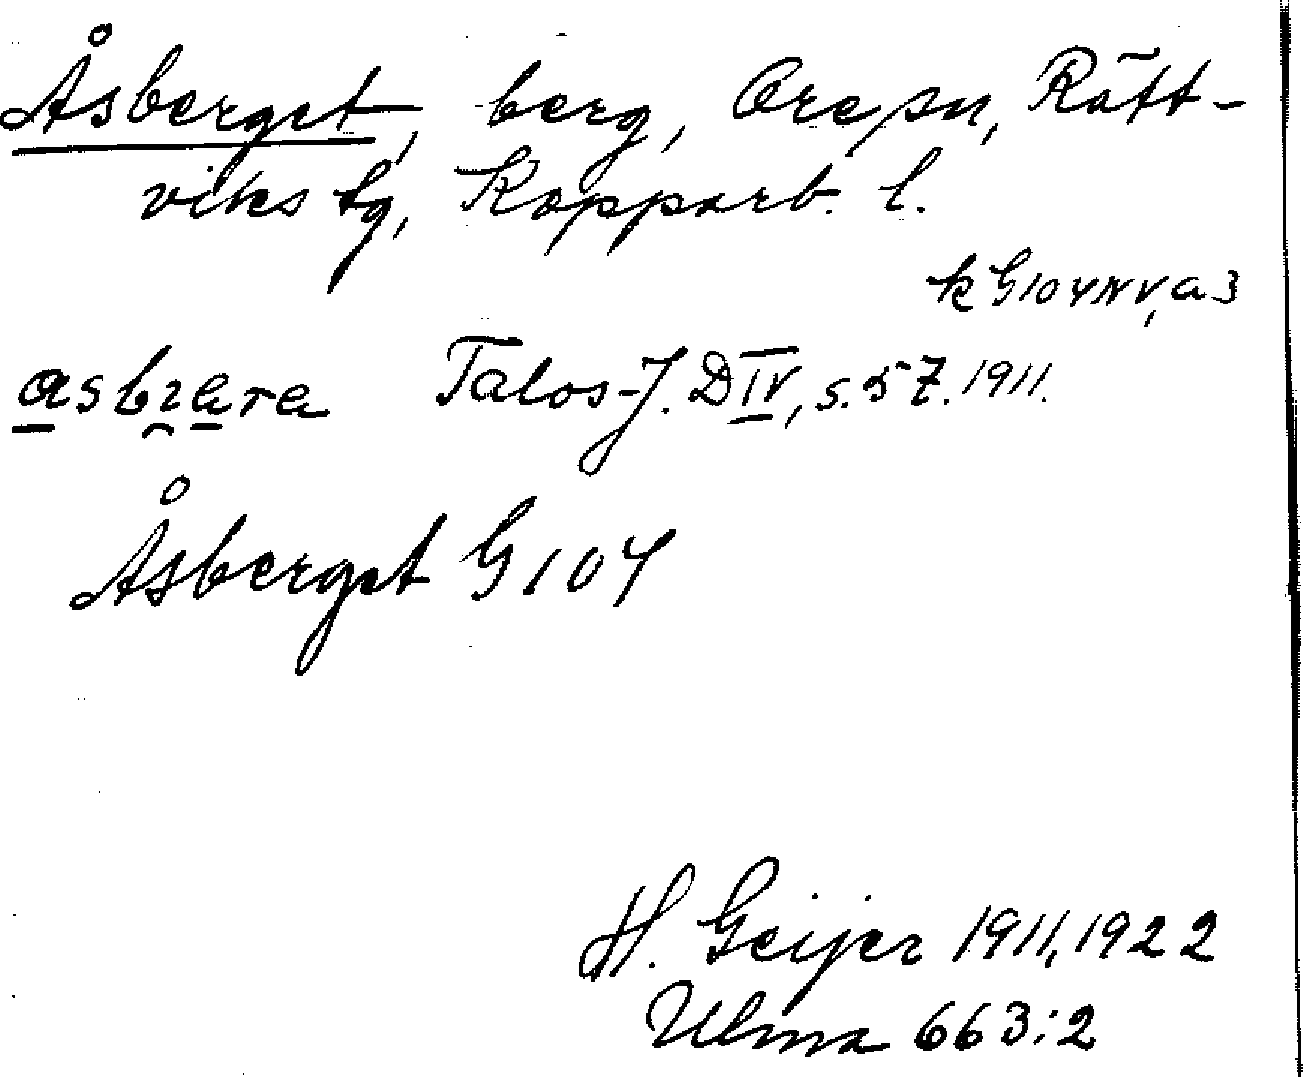 Åsberget, berg, Ore sn, Rätt-
viks tg, Kopparb. l.
k G104 NV, a3
Talos-J. D IV, s. 57. 1911.
Åsberget G104
H. Geijer 1911, 1922
Ulma 663:2